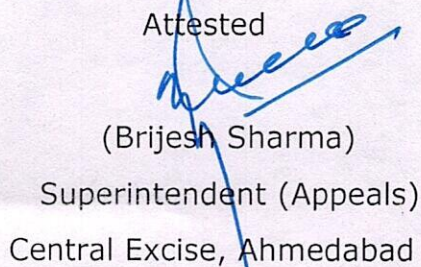 Attested
(Brijesh Sharma)
Superintendent (Appeals)
Central Excise, Ahmedabad